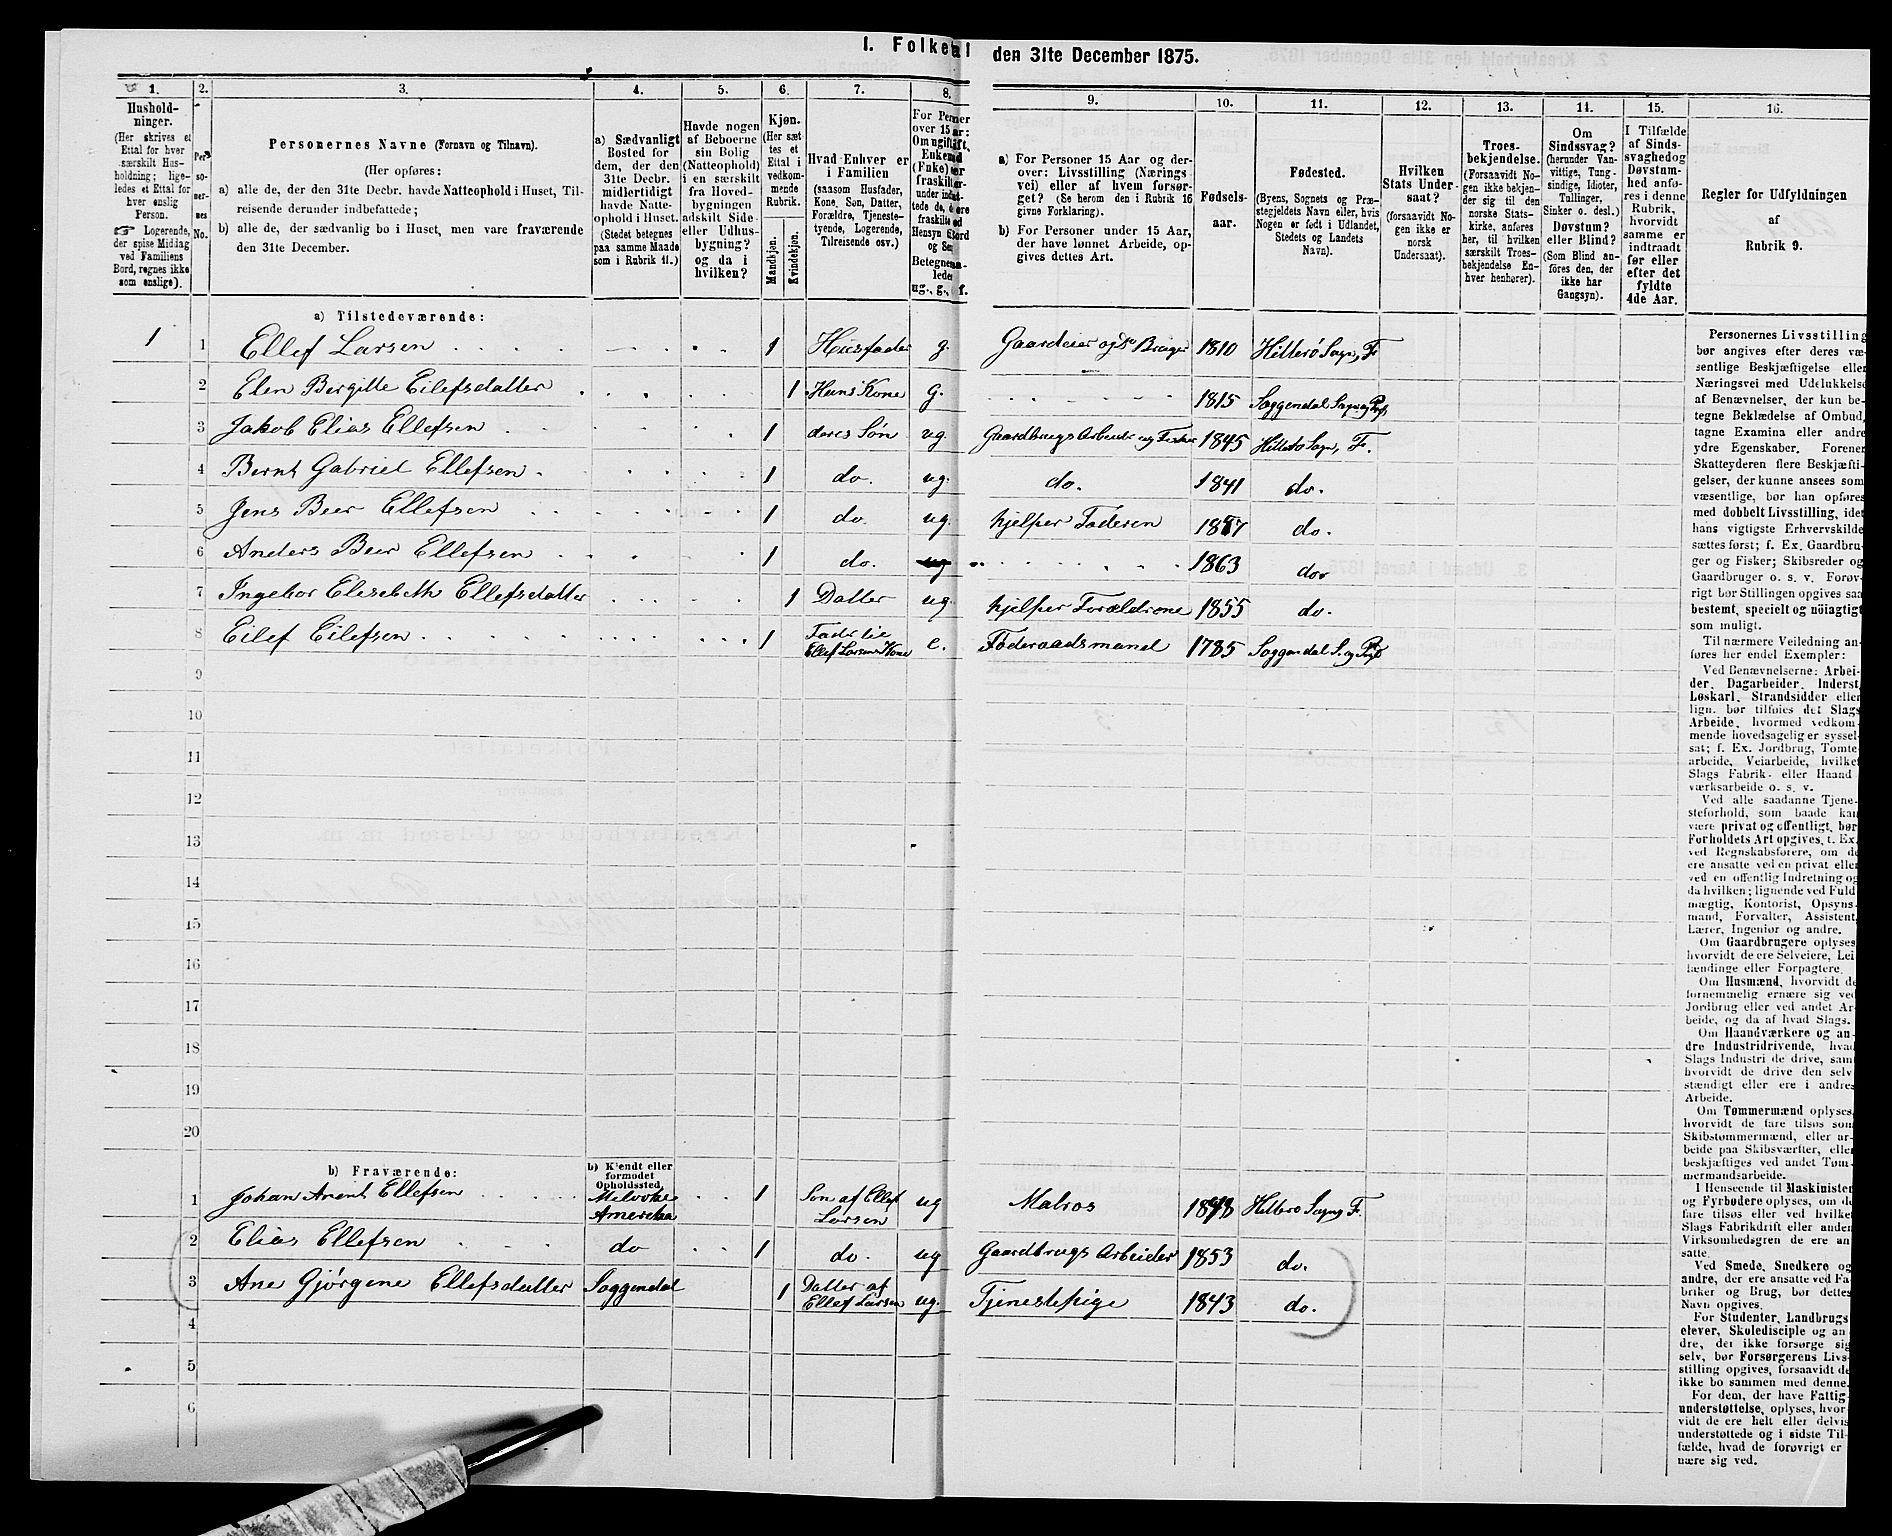 I. Folketal den 31te December 1875.
1. 2. 3. 4. 5. 6. 7. 8. 9. 10. 11. 12. 13. 14. 15. 16.
Hushold-
ninger.
(Her skrives et
Ettal for hver
særskilt Hus-
holdning; lige-
ledes et Ettal for
hver enslig
Person.
☞ Logerende,
der spise Middag
ved Familiens
Bord, regnes ikke
som enslige).
Per-
so-
ner-
nes
No.
Personernes Navne (Fornavn og Tilnavn).
(Her opføres:
a) alle de, der den 31te Decbr. havde Natteophold i Huset, Til-
reisende derunder indbefattede;
b) alle de, der sædvanlig bo i Huset, men vare fraværende
den 31te December.
a) Sædvanligt
Bosted for
dem, der den
31te Decbr.
midlertidigt
havde Natte-
ophold i Huset.
(Stedet betegnes
paa samme Maade
som i Rubrik 11.)
Havde nogen
af Beboerne
sin Bolig
(Natteophold)
i en særskilt
fra Hoved-
bygningen
adskilt Side-
eller Udhus-
bygning?
og da i
hvilken?
Kjøn.
(Her sæt-
tes et
Ettal i
vedkom-
mende
Rubrik.
Mandkjøn.
Kvindekjøn.
Hvad Enhver er
i Familien
(saasom Husfader,
Kone, Søn, Datter,
Forældre, Tjeneste-
tyende, Logerende,
Tilreisende osv.)
a) For Personer 15 Aar og der-
over: Livsstilling (Nærings-
vei) eller af hvem forsør-
get? (Se herom den i Rubrik 16
givne Forklaring).
b) For Personer under 15 Aar,
der have lønnet Arbeide, op-
gives dettes Art.
Fødsels-
aar.
Fødested.
(Byens, Sognets og Præ-
stegjeldets Navn eller, hvis
Nogen er født i Udlandet,
Stedets og Landets
Navn).
Hvilken
Stats Under-
saat?
(forsaavidt No-
gen ikke er
norsk
Undersaat).
Troes-
bekjendelse.
(Forsaavidt No-
gen ikke bekjen-
der sig til den
norske Stats-
kirke, anføres
her, til hvilken
særskilt Troes-
bekjendelse En-
hver henhører).
Om
Sindssvag?
(herunder Van-
vittige, Tung-
sindige, Idioter,
Tullinger,
Sinker o. desl.)
Døvstum?
eller Blind?
(Som Blind an-
føres den, der
ikke har
Gangsyn).
I Tilfælde
af Sinds-
svaghed og
Døvstum-
hed anfø-
res i denne
Rubrik,
hvorvidt
samme er
indtraadt
før eller
efter det
fyldte
4de Aar.
Regler for Udfyldningen
af
Rubrik 9.
a) Tilstedeværende:
1 1 Ellef Larsen 1 Husfader g. Gaardeier og ds Bruger 1810 Hitterö Sogn, F.
2 Elen Bergitte Eilefsdatter 1 Hans Kone g. 1815 Soggendal
3 Jakob Elias Ellefsen 1 deres Søn ug. Gaardbrugs Arbeider og Fisker 1845 Hitterö Sogn, F.
4 Bernt Gabriel Ellefsen 1 do. ug. do. 1841 do.
5 Jens Beer Ellefsen 1 do. ug. hjelper Faderen do.
6 Anders Beer Ellefsen 1 do. ug 1863 do
7 Ingebor Elisebeth Ellefsdatter 1 Datter ug. hjelper Forældrene 1855 do.
8 Eilef Eilefsen 1 Fader til
Ellef Larsens Kone e. Føderaadsmand 1785 Soggendal S. og
9
10
11
12
13
14
15
16
17
18
19
20
b) Fraværende:
b) Kjendt eller
formodet
Opholdssted.
1 Johan Arent Ellefsen Amerika 1 Søn af Ellef
Larsen ug Matros Hitterö Sogn, F.
2 Elias Ellefsen do 1 do. ug Gaardbrugs Arbeider 1853 do.
3 Ane Gjörgene Ellefsdatter Soggendal 1 Datter af
Ellef Larsen ug. Tjenestepige 1843 do.
4
5
6
Personernes Livsstilling
bør angives efter deres væ-
sentlige Beskjæftigelse eller
Næringsvei med Udelukkelse
af Benævnelser, der kun be-
tegne Beklædelse af Ombud,
tagne Examina eller andre
ydre Egenskaber. Forener
Skatteyderen flere Beskjæfti-
gelser, der kunne ansees som
væsentlige, bør han opføres
med dobbelt Livsstilling, idet
hans vigtigste Erhvervskilde
sættes først; f. Ex. Gaardbru-
ger og Fisker; Skibsreder og
Gaardbruger o. s. v. Forøv-
rigt bør Stillingen opgives saa
bestemt, specielt og nöiagtigt
som muligt.
Til nærmere Veiledning an-
føres her endel Exempler:
Ved Benævnelserne: Arbei-
der, Dagarbeider, Inderst,
Løskarl, Strandsidder eller
lign. bør tilføies det Slags
Arbeide, hvormed vedkom-
mende hovedsagelig er syssel-
sat; f. Ex. Jordbrug, Tomte-
arbeide, Veiarbeide, hvilket
Slags Fabrik- eller Haand-
værksarbeide o. s. v.
Ved alle saadanne Tjene-
steforhold, som baade kan
være privat og offentligt, bør
Forholdets Art opgives, t. Ex.
ved Regnskabsførere, om de
ere ansatte ved en privat eller
ved en offentlig Indretning og
da hvilken; lignende ved Fuld-
mægtig, Kontorist, Opsyns-
mand, Forvalter, Assistent,
Lærer, Ingeniør og andre.
Om Gaardbrugere oplyses,
hvorvidt de ere Selveiere, Lei-
lændinge eller Forpagtere.
Om Husmænd, hvorvidt de
fornemmelig ernære sig ved
Jordbrug eller ved andet Ar-
beide, og da af hvad Slags.
Om Haandværkere og an-
dre Industridrivende, hvad
Slags Industri de drive, samt
hvorvidt de drive den selv-
stændigt eller ere i andres
Arbeide.
Om Tømmermænd oplyses,
hvorvidt de fare tilsøs som
Skibstømmermænd, eller ar-
beide paa Skibsværfter, eller
beskjæftiges ved andet Tøm-
mermandsarbeide.
I Henseende til Maskinister
og Fyrbødere oplyses, om de
fare tilsøs eller ved hvilket
Slags Fabrikdrift eller anden
Virksomhedsgren de ere an-
satte.
Ved Smede, Snedkere og
andre, der ere ansatte ved Fa-
briker og Brug, bør dettes
Navn opgives.
For Studenter, Landbrugs-
elever, Skoledisciple og an-
dre, der ikke forsørge sig
selv, bør Forsørgerens Livs-
stilling opgives, forsaavidt de
ikke bo sammen med denne.
For dem, der have Fattig-
understøttelse, oplyses, hvor-
vidt de ere helt eller delvis
understøttede og i sidste Til-
fælde, hvad de forøvrigt er-
nære sig ved.